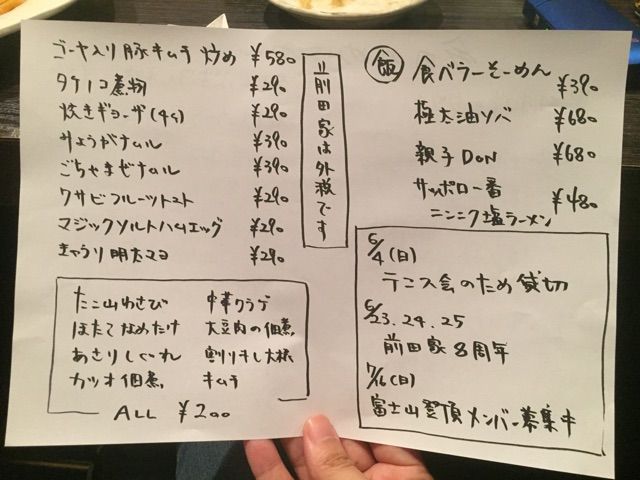 ゴーヤ入り豚キムチ炒め ¥580
タケノコ煮物 ¥290
焼きギョーザ(4ヶ) ¥290
みょうがナムル ¥390
ごちゃまぜナムル ¥390
ワサビフルーツトマト ¥290
マジックソルトハムエッグ ¥290
きゅうり明太マヨ ¥290
たこ山わさび 中華クラゲ
ほたてなめたけ 大豆肉の佃煮
あさりしぐれ 割り干し大根
カツオ佃煮 キムチ
ALL ¥200
前田家は外税です
飯 食べラーそーめん ¥390
極太油ソバ ¥680
親子DON ¥680
サッポロ一番 ¥480
ニンニク塩ラーメン
6/4(日)
テニス会のため貸切
6/23.24.25
前田家8周年
7/16(日)
富士山登頂メンバー募集中